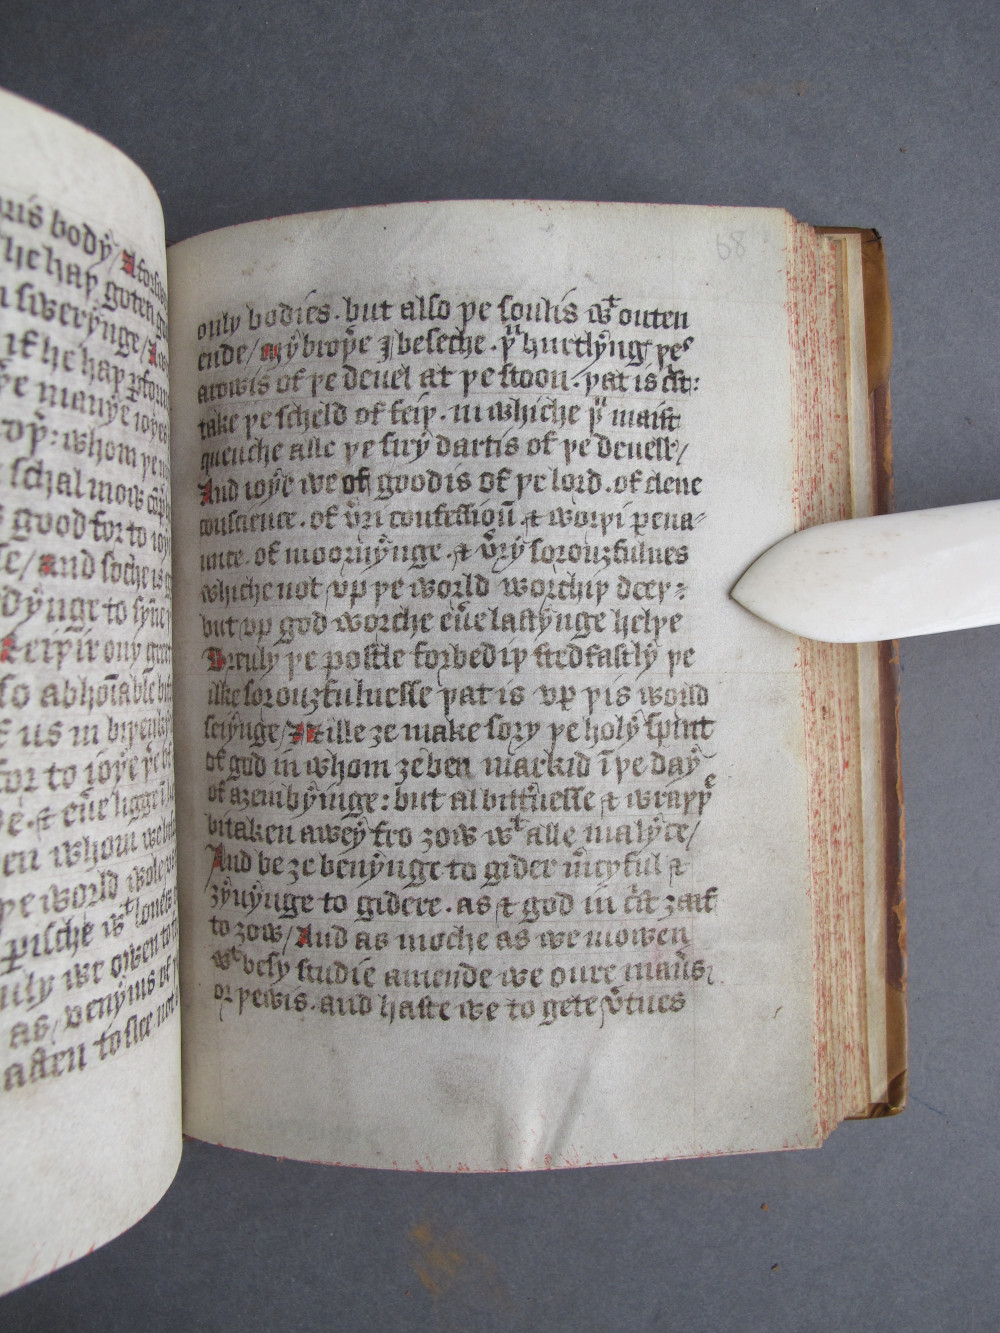 us body / Aforso
he haþ goten go
swerynge / A
if he haþ ꝑfom
e manye ioyes
oþ: whom ye
schal mow
good for to ioy
se / And soche is
dynge to syne
Neiþir ony gree
so abhoīable
us in biþenk
for to ioye
e . & eue ligge
en whom we
þe world wole
perische wt
uly we owen to
as / venyms of
asten to slee not
68
only bodies . but also þe soulis wt outen
ende / My broþe I beseche . þu hurtlyng þes
arowis of þe deuel at þe stoon . þat is cst:
take þe scheld of feiþ . in whiche þu maist
quenche alle þe firy dartis of þe deuelle /
And ioye we of goodis of þe lord . of clene
conscience . of vri confessioun . & worþi pena-
unce . of moornynge . & vry sorouzfulnes
whiche not vp þe world worchiþ deeþ:
but vp god worche eue lastynge helþe
Treuly þe postle forbediþ stedfastly þe
ilke sorouzfulnesse þat is vp þis world
seiynge / Nille ze make sory þe holy spirit
of god in whom ze ben markid ī þe day
of azenbyinge : but al bittnesse & wraþþe
bitaken awey fro zow wt alle malyce /
And be ze benynge to gider mcyful &
zyuynge to gidere . as & god in cst zaf
to zow / And as moche as we mowen
wt besy studie amende we oure maūs .
or þewis . and haste we to gete vtues